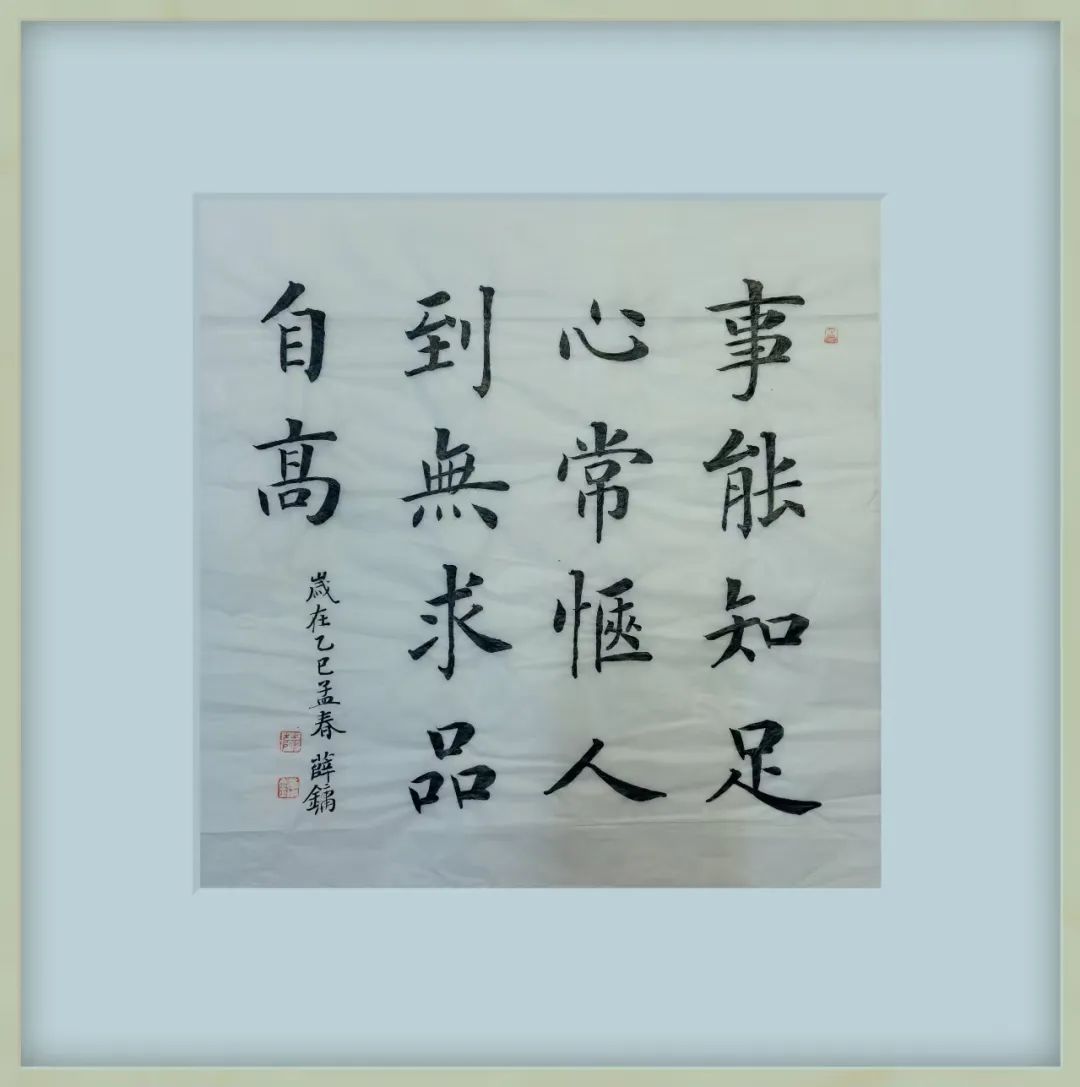 事能知足
心常惬人
到無求品
自高
歲在乙巳孟春 薛鏞